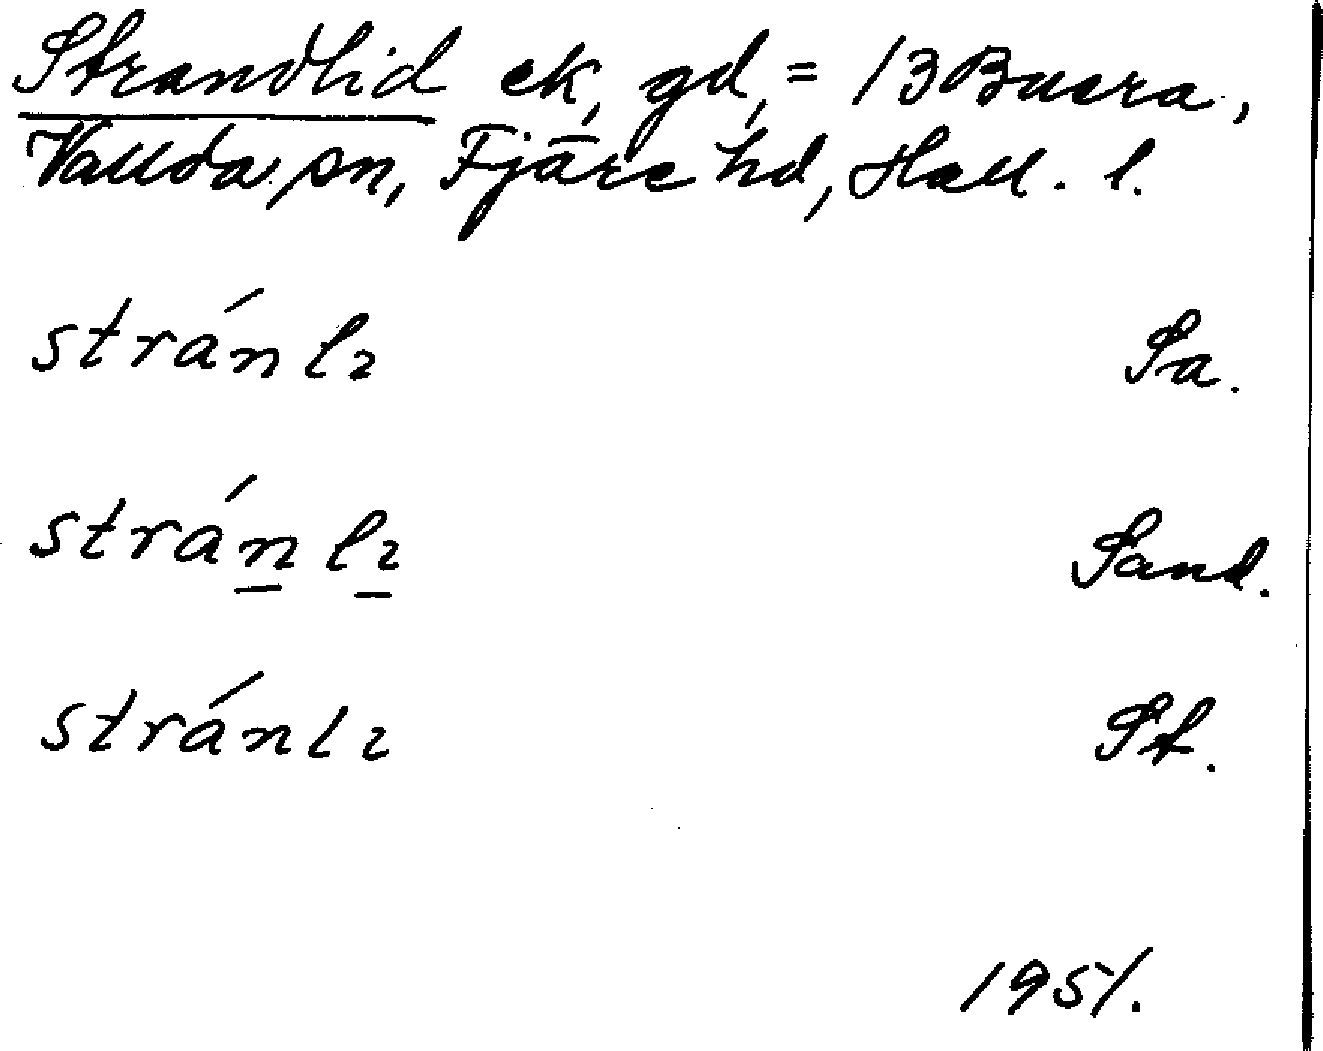 Strandlid ek, gd, = 13 Buera,
Vallda sn, Fjäre hd, Hall. l.
stránlɩ Sa.
stránlɩ Sand.
stránlɩ St.
1951.